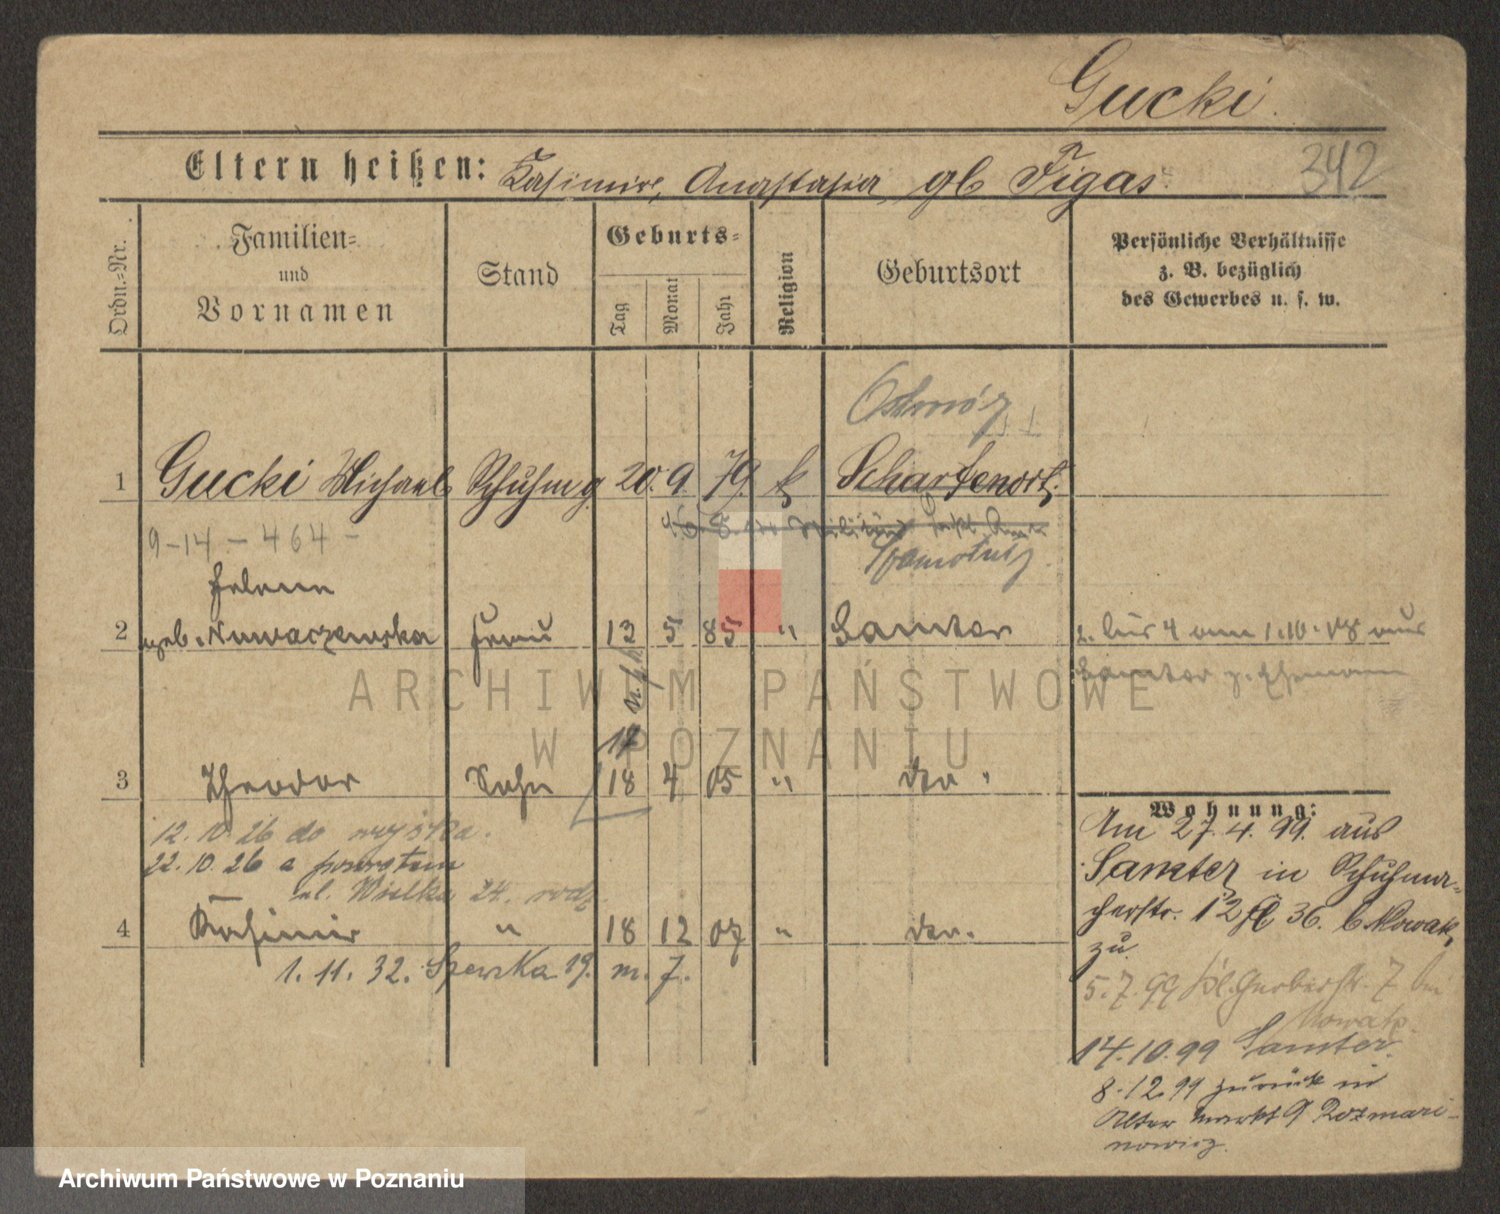 Gucki.
342
Eltern heißen: Kasimire, Anastasia gb Figas
Ordn.-Nr.
Familien- und Vornamen
Stand
Geburts-
Tag
Monat
Jahr
Religion
Geburtsort
Persönliche Verhältnisse
z. B. bezüglich
des Gewerbes u. s. w.
Ostroróg
1 Gucki Michael Schuhmg 20. 9. 79. k Scharfenort.
9-14 - 464 -
Szamotuły
Helene
2 geb. Nowaczewska Frau 12 5. 85 " Samter 2. bis 4 am 1.10. aus
Samter z. Ehemann
17
3 Theodor Sohn 18 4 05 " do.
12. 10. 26 do wojska.
22. 10. 26 a powrotem
ul. Wielka 24. rodz.
4 Kasimir " 18 12 07 " do.
1. 11. 32. Szewska 19. m. 7.
Wohnung:
Am 27. 4. 99. aus
Samter in Schuhma-
cherstr. 12 36. b. Nowak
zu
5. 7. 99 Kl. Gerberstr. 7 bei
Nowak.
14. 10. 99 Samter.
8. 12. 99 zurück in
Alter Markt 9 Rozmari-
nowicz.
ARCHIWUM PAŃSTWOWE
W POZNANIU
Archiwum Państwowe w Poznaniu